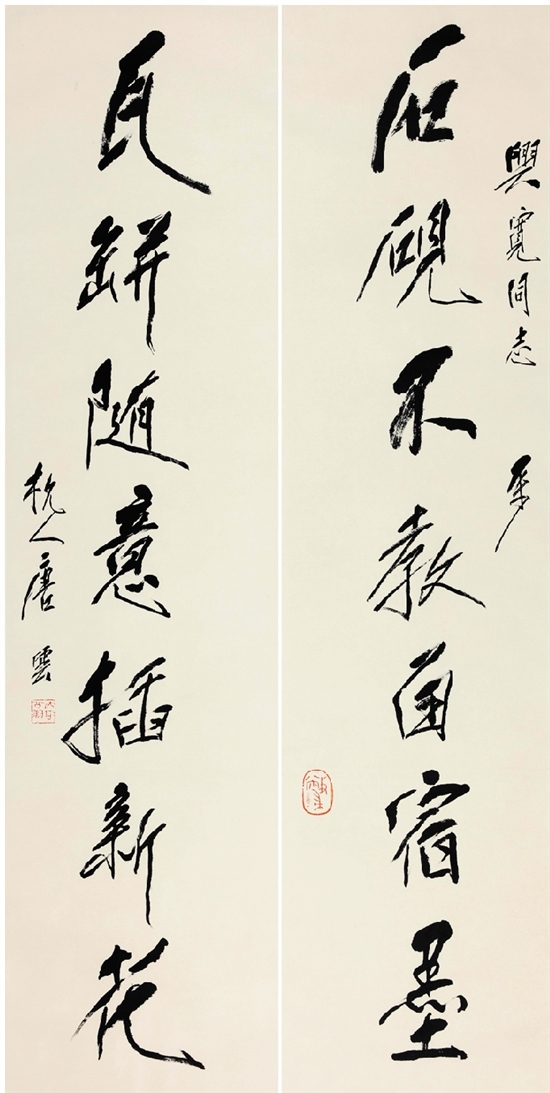 興寬同志
石硯不教留宿墨
瓦缾随意插新花
杭人唐雲